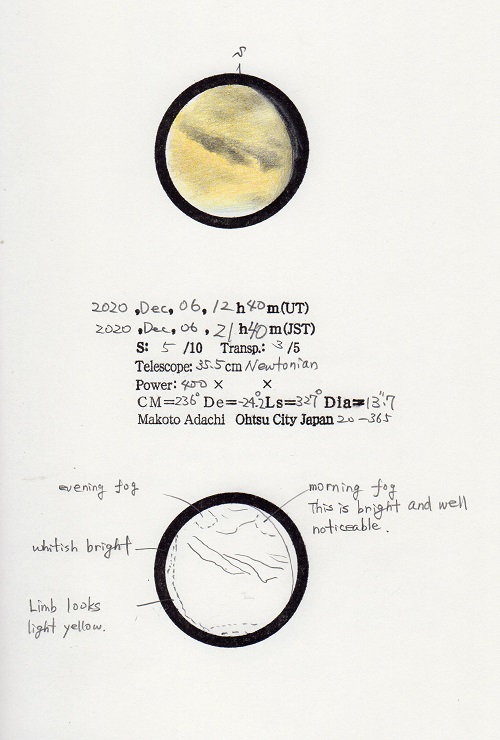 S
2020 ,Dec, 06, 12h40m(UT)
2020 ,Dec, 06 , 21h40m(JST)
S: 5 /10 Transp.: 3 /5
Telescope: 35.5cm Newtonian
Power: 400 × ×
CM=236° De=-24.2° Ls=327° Dia=13".7
Makoto Adachi Ohtsu City Japan 20-365
evening fog
morning fog
This is bright and well
noticeable.
whitish bright
Limb looks
light yellow.